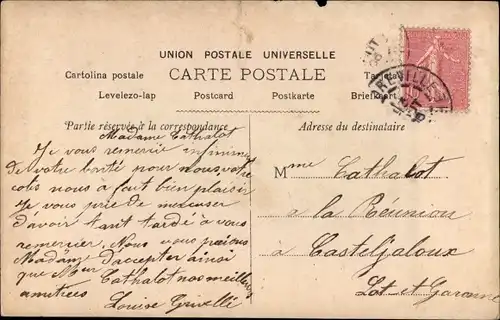 UNION POSTALE UNIVERSELLE
CARTE POSTALE
Cartolina postale
Levelezo-lap Postcard Postkarte
Partie réservée à la correspondance
Adresse du destinataire
Madame Cathalot
Je vous remercie infiniment
de votre bonté pour nous, votre
colis nous à fait bien plaisir
Je vous prie de m'excuser
d'avoir tant tardé à vous
remercier. Nous vous prions
Madame d'accepter ainsi
que Mr Cathalot nos meilleurs
amitiées
Louise
Mme Cathalot
a la Réunion
à Casteljaloux
Lot et Garonne